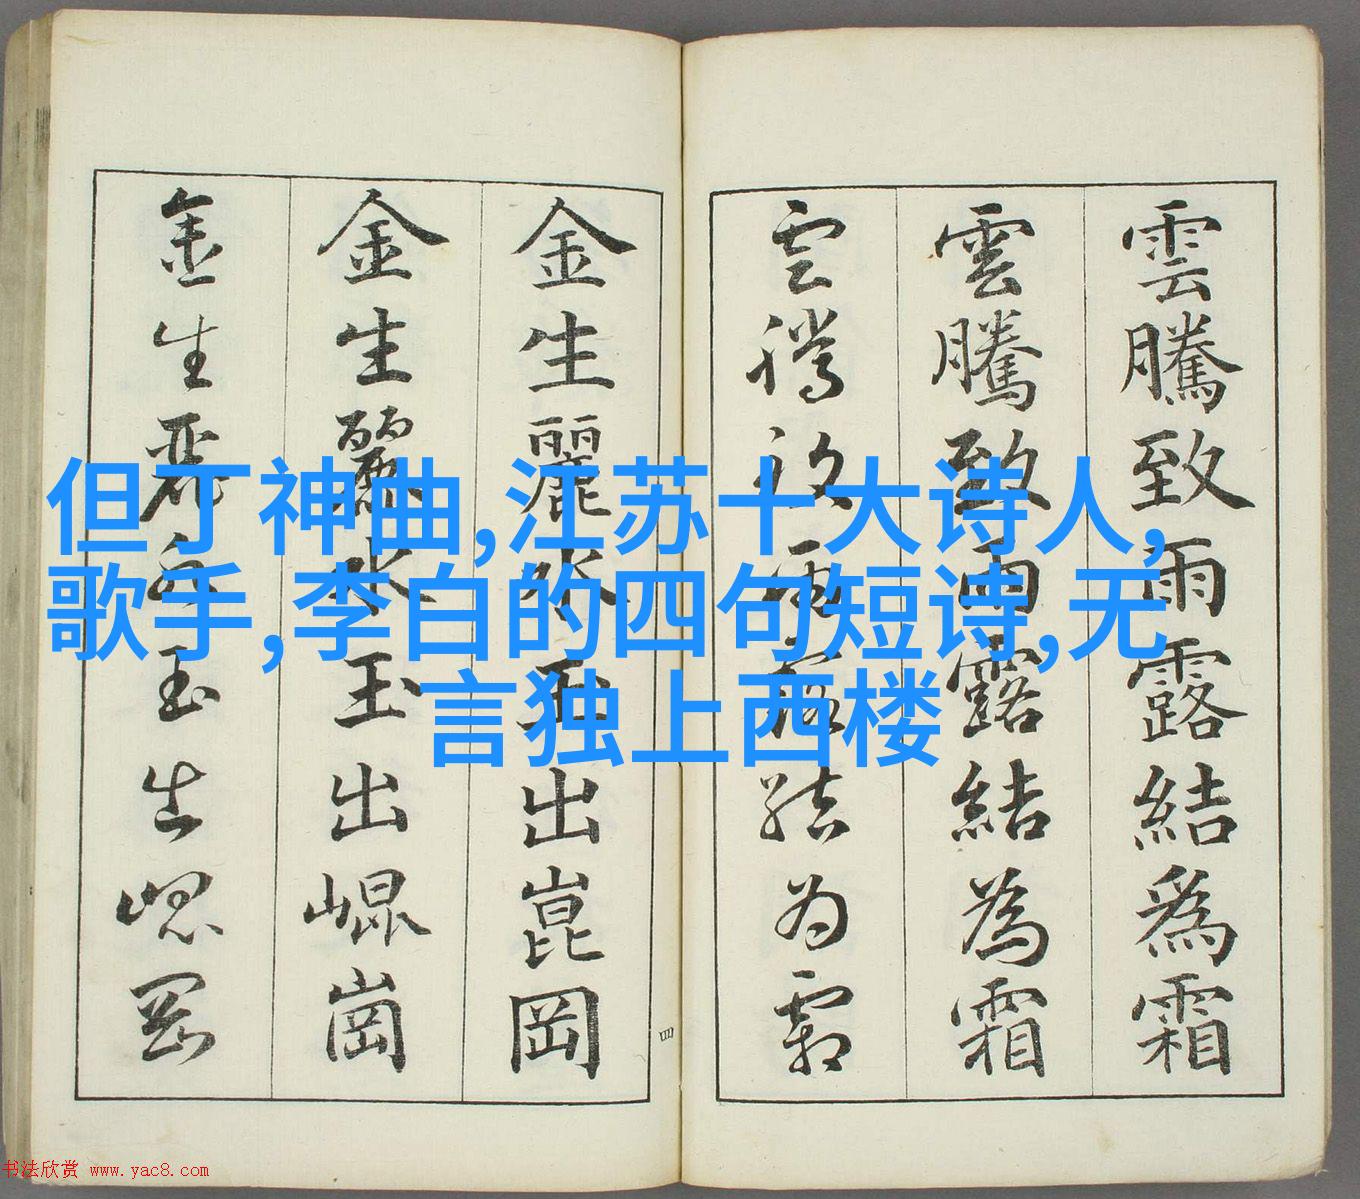 雲騰致雨露結爲霜
雲騰致雨露結為霜
雲騰致雨露結为霜
四
金生麗水玉出崑岡
金生麗水玉出崐崗
金生麗水玉出崐岡
但丁神曲,江苏十大诗人,
歌手,李白的四句短诗,无
言独上西楼
书法欣赏 www.yac8.com